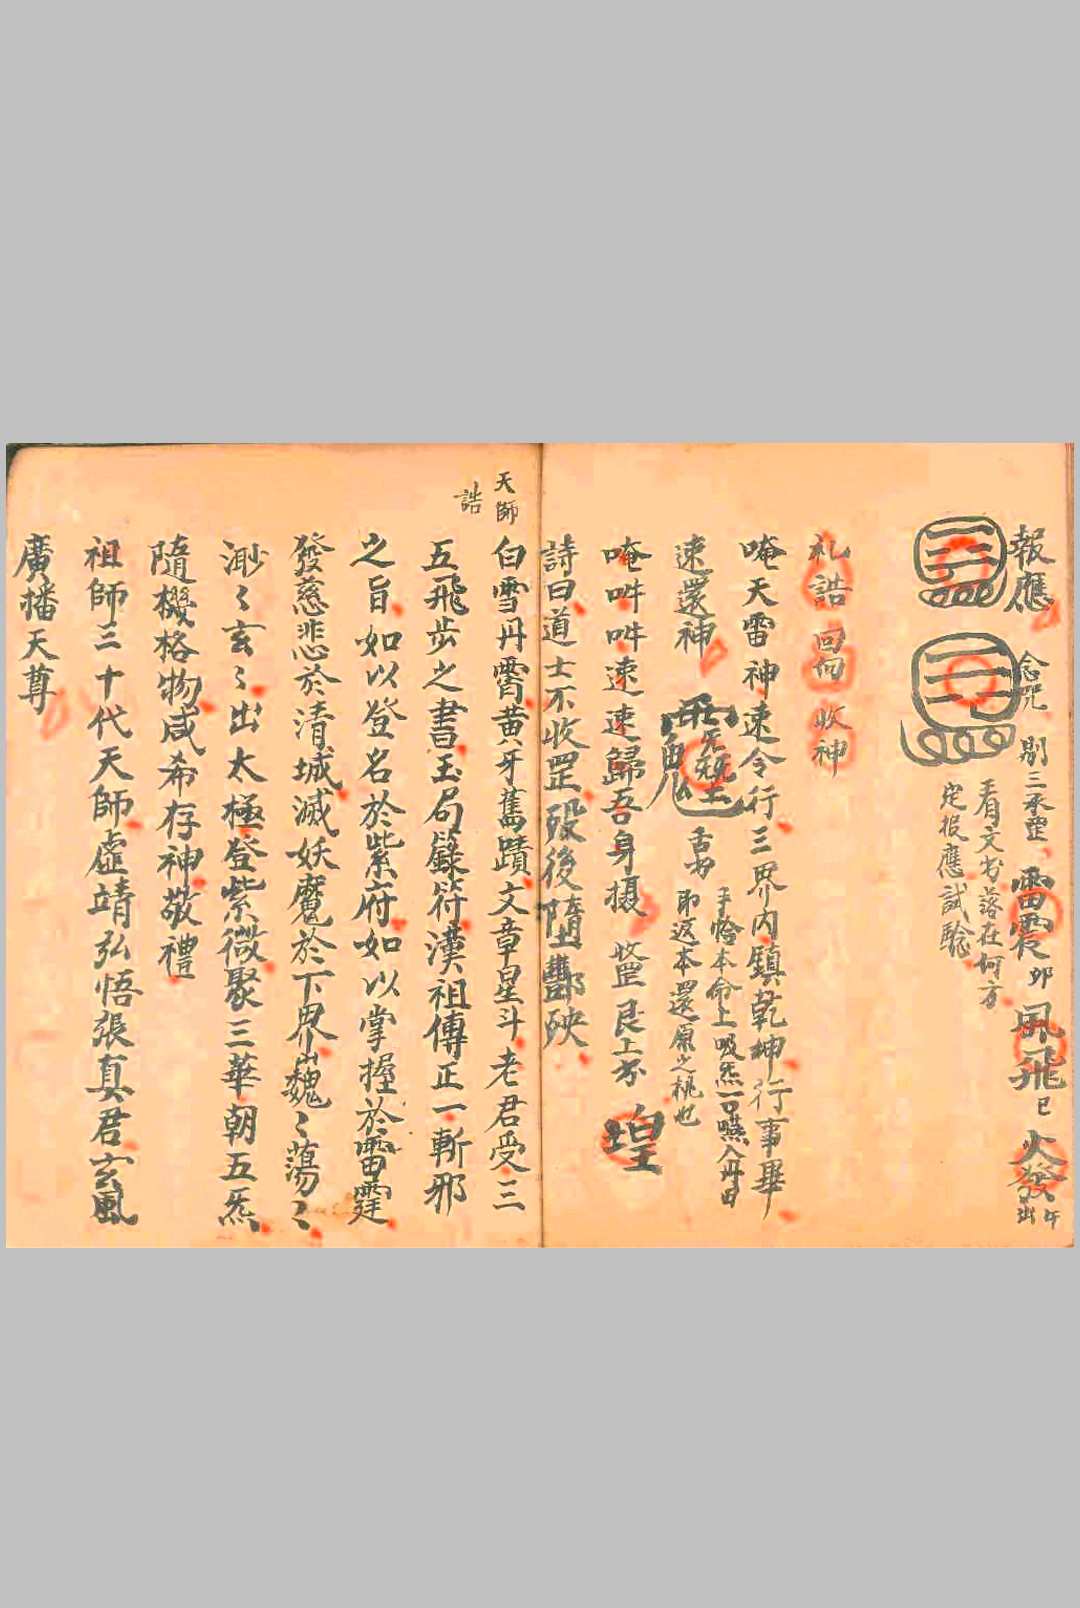 報應 念咒 剔三承罡 雷震卯 風飛巳 火發午出
看文书落在何方
定报應試驗
礼誥回向收神
唵天雷神速令行三界內鎮乾坤行事畢
速還神 舌书
手恰本命上吸炁一口嚥入丹田
即返本還原之機也
唵吽吽速速歸吾身摄 收罡艮上分
詩曰道士不收罡 歿後墮酆殃
天師
誥
白雪丹霄黄牙舊蹟文章星斗老君受三
五飛步之書玉局籙符漢祖傳正一斬邪
之旨如以登名於紫府如以掌握於雷霆
發慈悲於清城滅妖魔於下界巍〻蕩〻
渺〻玄〻出太極登紫微聚三華朝五炁
隨機格物咸希存神敬禮
祖師三十代天師虛靖弘悟張真君玄風
廣播天尊